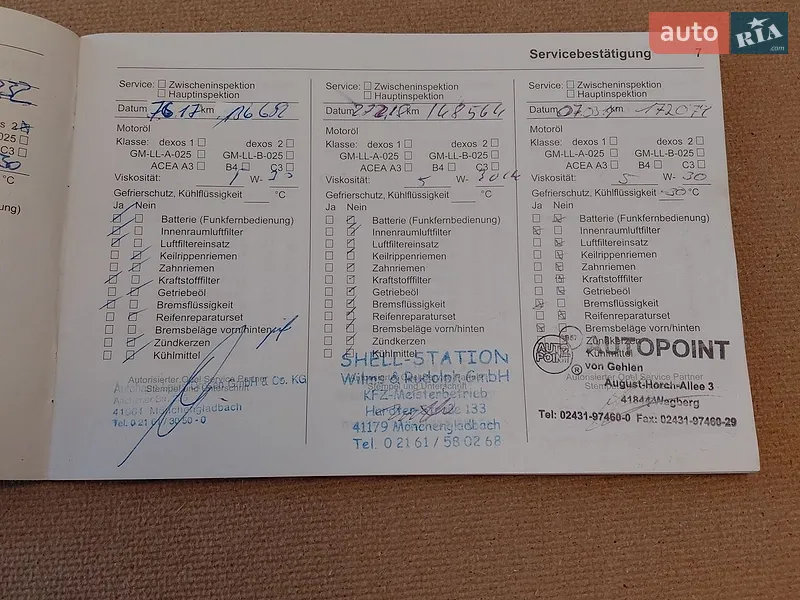 auto RIA .com
Servicebestätigung 7
Service: Zwischeninspektion
Hauptinspektion
Datum km
Motoröl
Klasse: dexos 1 dexos 2
GM-LL-A-025 GM-LL-B-025
ACEA A3 B4 C3
Viskosität: W-
Gefrierschutz, Kühlflüssigkeit °C
Ja Nein
Batterie (Funkfernbedienung)
Innenraumluftfilter
Luftfiltereinsatz
Keilrippenriemen
Zahnriemen
Kraftstofffilter
Getriebeöl
Bremsflüssigkeit
Reifenreparaturset
Bremsbeläge vorn/hinten
Zündkerzen
Kühlmittel
Autorisierter Opel Service Partner
Stempel und Unterschrift
& Co. KG
41061 Mönchengladbach
Service: Zwischeninspektion
Hauptinspektion
Datum km 148564
Motoröl
Klasse: dexos 1 dexos 2
GM-LL-A-025 GM-LL-B-025
ACEA A3 B4 C3
Viskosität: 5 W-
Gefrierschutz, Kühlflüssigkeit °C
Ja Nein
Batterie (Funkfernbedienung)
Innenraumluftfilter
Luftfiltereinsatz
Keilrippenriemen
Zahnriemen
Kraftstofffilter
Getriebeöl
Bremsflüssigkeit
Reifenreparaturset
Bremsbeläge vorn/hinten
Zündkerzen
Kühlmittel
SHELL-STATION
Wilms & Rudolph GmbH
KFZ-Meisterbetrieb
133
41179 Mönchengladbach
Tel. 0 21 61 / 58 02 68
Service: Zwischeninspektion
Hauptinspektion
Datum km 172071
Motoröl
Klasse: dexos 1 dexos 2
GM-LL-A-025 GM-LL-B-025
ACEA A3 B4 C3
Viskosität: 5 W- 30
Gefrierschutz, Kühlflüssigkeit -30 °C
Ja Nein
Batterie (Funkfernbedienung)
Innenraumluftfilter
Luftfiltereinsatz
Keilrippenriemen
Zahnriemen
Kraftstofffilter
Getriebeöl
Bremsflüssigkeit
Reifenreparaturset
Bremsbeläge vorn/hinten
Zündkerzen
Kühlmittel
AUTOPOINT
von Gehlen
August-Horch-Allee 3
41844 Wegberg
Tel: 02431-97460-0 Fax: 02431-97460-29